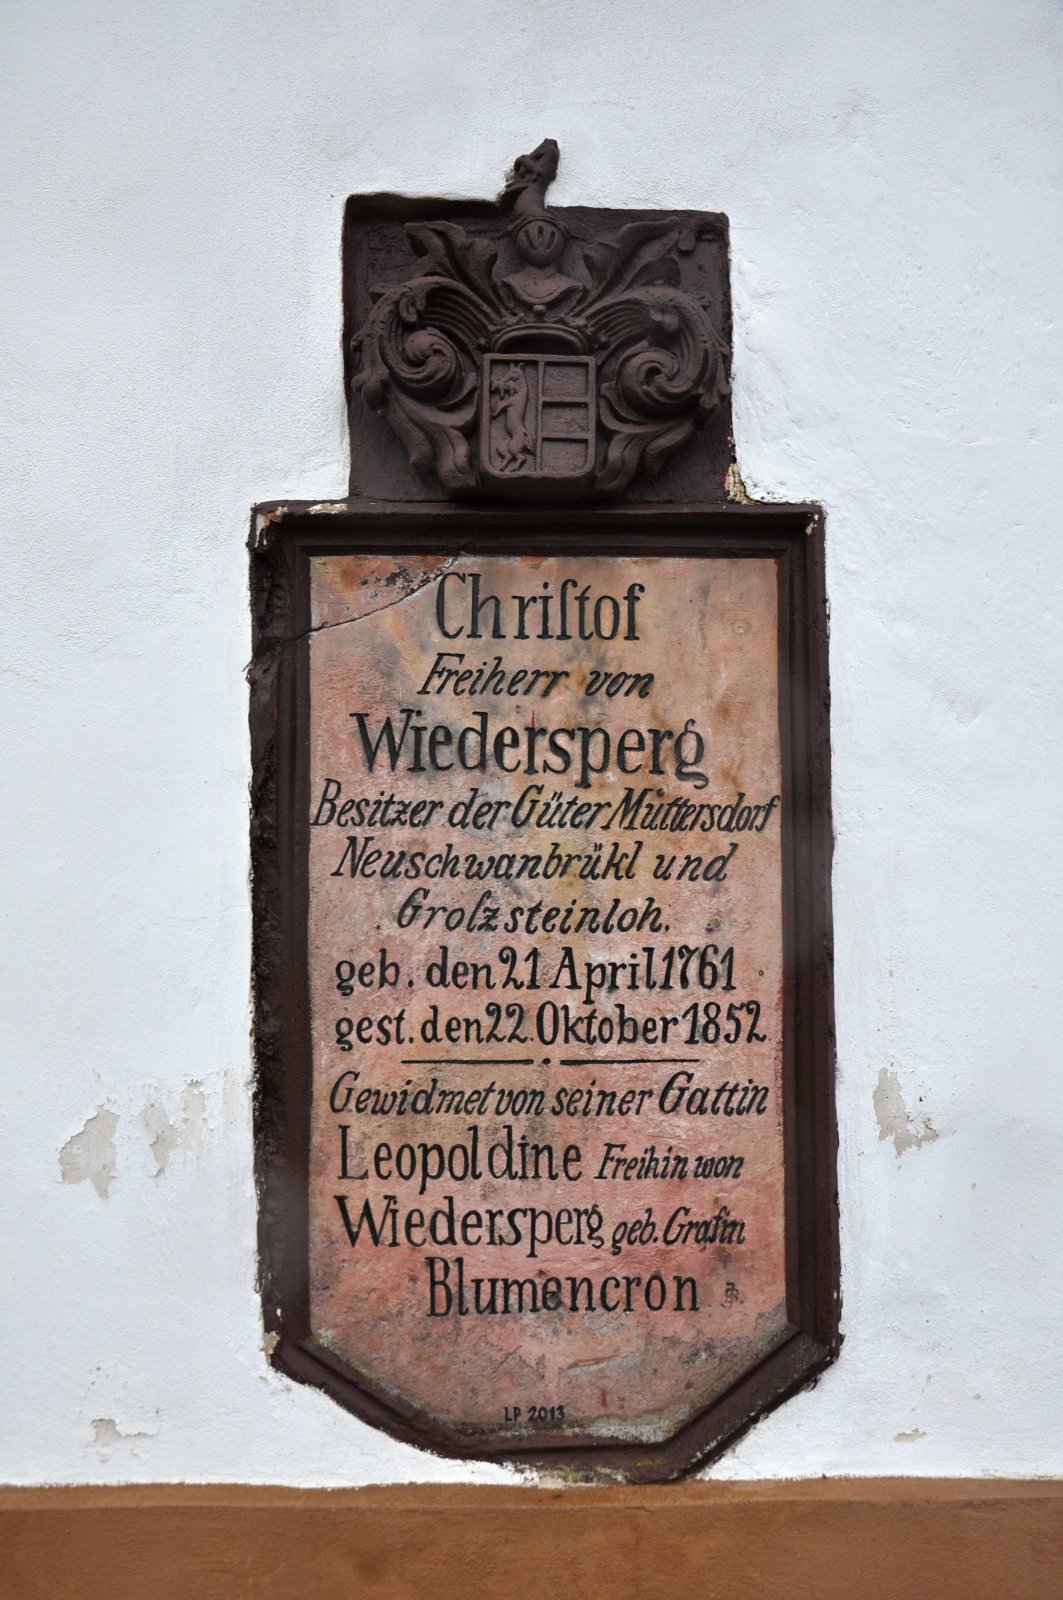 Chriſtof
Freiherr von
Wiedersperg
Besitzer der Güter Müttersdorf
Neuschwanbrükl und
Groſzsteinloh.
geb. den 21 April 1761
gest. den 22. Oktober 1852
Gewidmet von seiner Gattin
Leopoldine Freihin won
Wiedersperg geb. Grafin
Blumencron
LP 2013